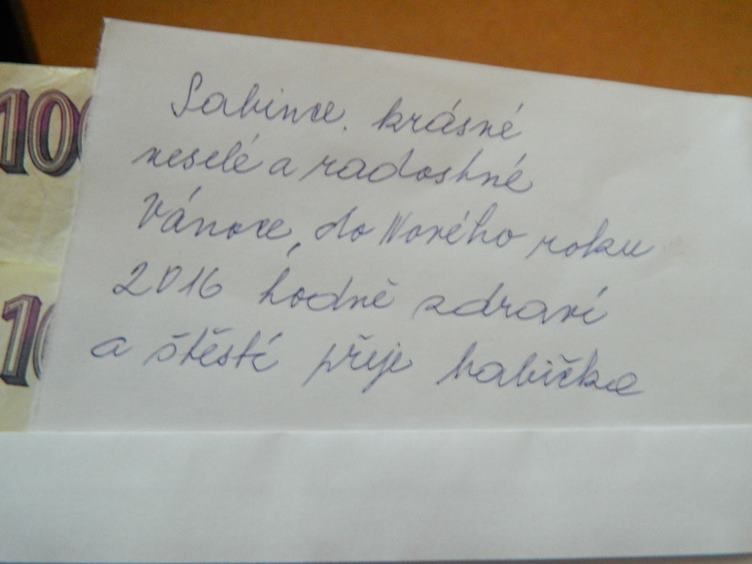 100
10
Sabince. krásné
veselé a radostné
Vánoce, do Nového roku
2016 hodně zdraví
a štěstí přeje babička